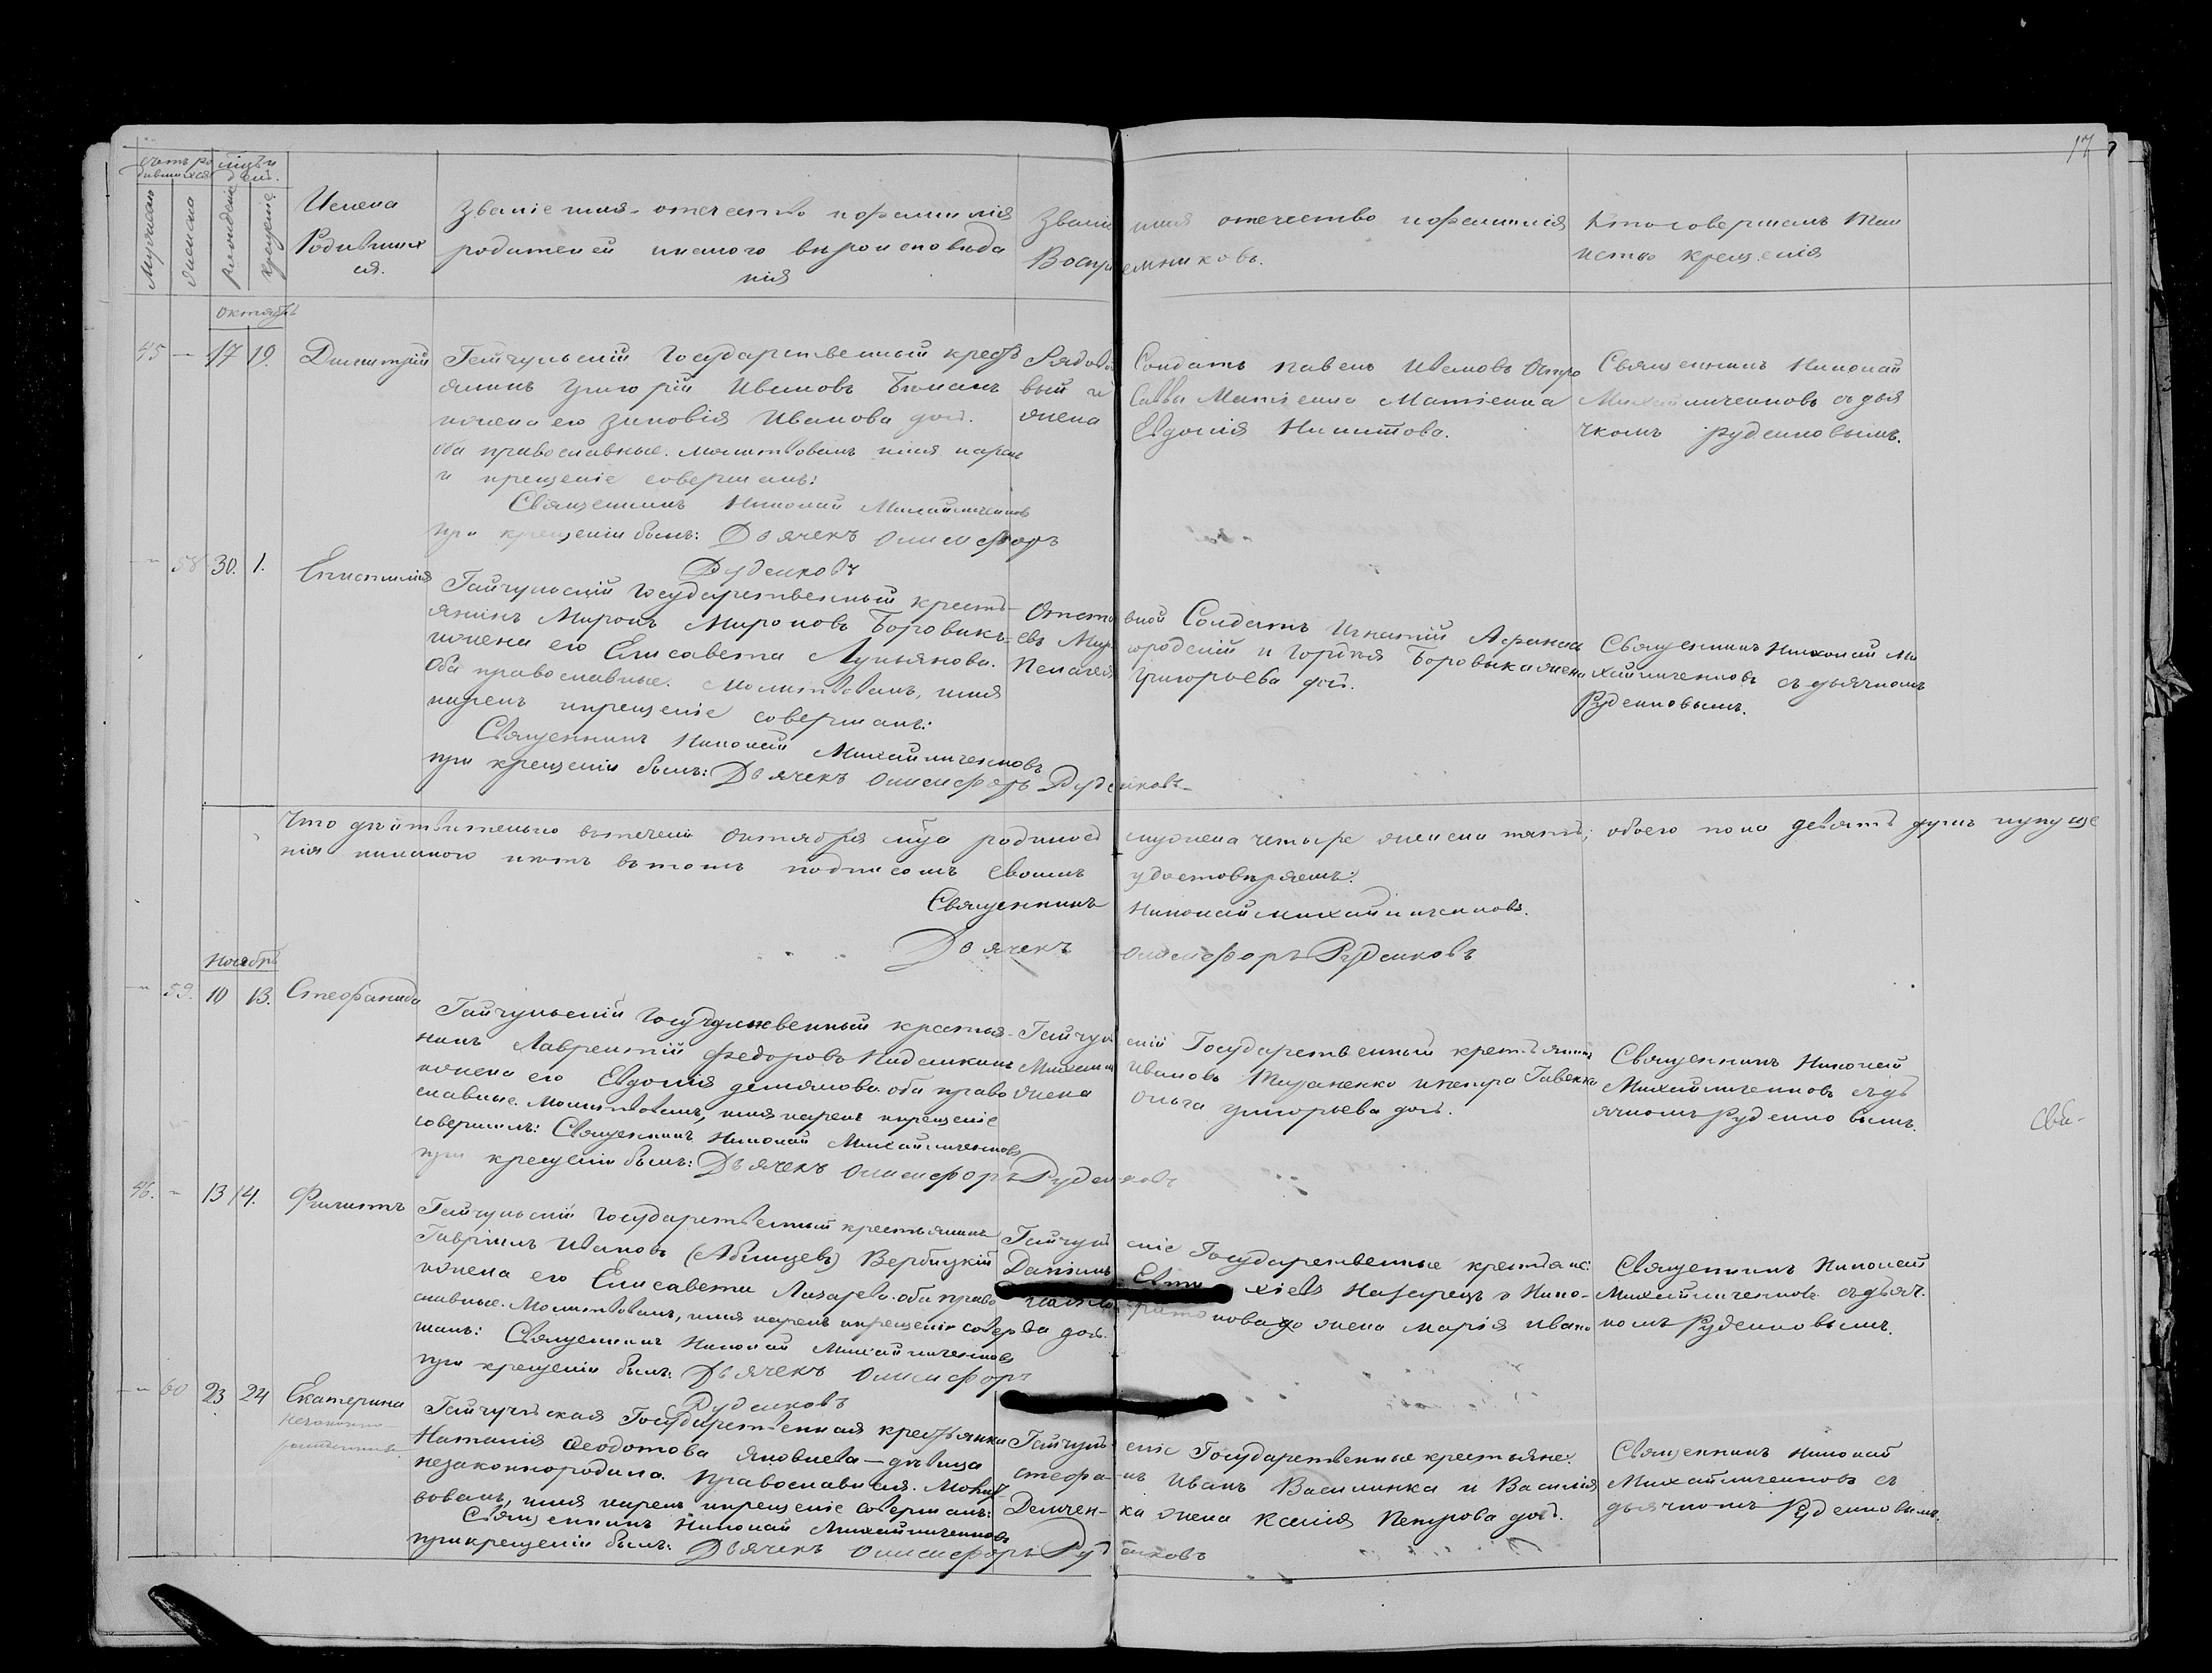 17
счетъ ро дившихся
мѣсяцъ и день.
Мужескаго
женска
рожденія
крещенія
Имена
Родивших
ся.
Званіе имя отечество и фамилія
родителей и какого вѣроисповѣда
нія
Званіе имя отечество и фамилія
Воспріемниковъ.
Кто совершалъ Таи
нство крещенія
октябрь
45 — 17 19. Димитрій
Гайчульскій Государственный кресть
янинъ Григорій Ивановъ
и жена его Зиновія Ивановa доч.
оба православные. Молитвовалъ имя нареч
и крещеніе совершалъ:
Священникъ Николай Михайличенковъ
при крещеніи былъ: Дьячекъ Онисифоръ
Руденковъ
Рядовой Солдатъ Павелъ Ивановъ
Савва Матвіенко Матвіенка
жена Евдокія Никитова.
Священникъ Николай
Михайличенковъ съ дья
чкомъ Руденковымъ.
— 58 30. 1. Епистимія
Гайчульскій Государственный кресть-
янинъ Миронъ Мироновъ Боровикъ
и жена его Елисавета Лукьянова.
Оба православные. Молитвовалъ, имя
нарекъ и крещеніе совершалъ:
Священникъ Николай Михайличенковъ
при крещеніи былъ: Дьячекъ Онисифоръ Руденковъ
Отставной Солдатъ Игнатій Афанась
евъ Миргородскій и Гордѣя Боровыка жена
Пелагея Григорьева доч.
Священникъ Николай Ми
хайличенковъ съ дьячкомъ
Руденковымъ.
Что дѣйствительно въ теченіи Октября мѣсяца родилось мужеска четыре женска пять; обоего пола девять душъ и пуще
нія никакого нѣтъ въ томъ подписомъ своимъ удостовѣряемъ:
Священникъ Николай Михайличенковъ.
Дьячекъ Онисифоръ Руденковъ
Ноябрь
— 59. 10 13. Стефанида
Гайчульскій Государственный крестья-
нинъ Лаврентій Федоровъ
и жена его Евдокія Демянова. оба право
славные. Молитвовалъ, имя нарекъ и крещеніе
совершилъ: Священникъ Николай Михайличенковъ
при крещеніи былъ: Дьячекъ Онисифоръ Руденковъ
Гайчульскій Государственный крестьянинъ
Ивановъ и Петра
жена Ольга Григорьева доч.
Священникъ Николай
Михайличенковъ съ дь
ячкомъ Руденковымъ.
46. — 13 14. Филиппъ
Гайчульскій Государственный крестьянинъ
Гавріилъ Ивановъ Вербицкій
и жена его Елисавета Лазарева. оба право
славные. Молитвовалъ, имя нарекъ и крещеніе совер
шалъ: Священникъ Николай Михайличенковъ
при крещеніи былъ: Дьячекъ Онисифоръ
Руденковъ
Гайчульскіе Государственные крестьяне:
Даніилъ Назарецъ и
жена Марія Ивано
ва доч.
Священникъ Николай
Михайличенковъ съ дьяч.
комъ Руденковымъ.
— 60 23 24 Екатерина
незаконно
рожденная
Гайчульская Государственная крестьянка
Наталія Феодотова Яковлева — дѣвица
незаконнородила. Православная. Молит
вовалъ, имя нарекъ и крещеніе совершалъ:
Священникъ Николай Михайличенковъ
при крещеніи былъ: Дьячекъ Онисифоръ Руденковъ
Гайчульскіе Государственные крестьяне:
Стефанъ Ивановъ Василинка и Василія
Демченка жена Ксенія Петрова доч.
Священникъ Николай
Михайличенковъ съ
дьячкомъ Руденковымъ.